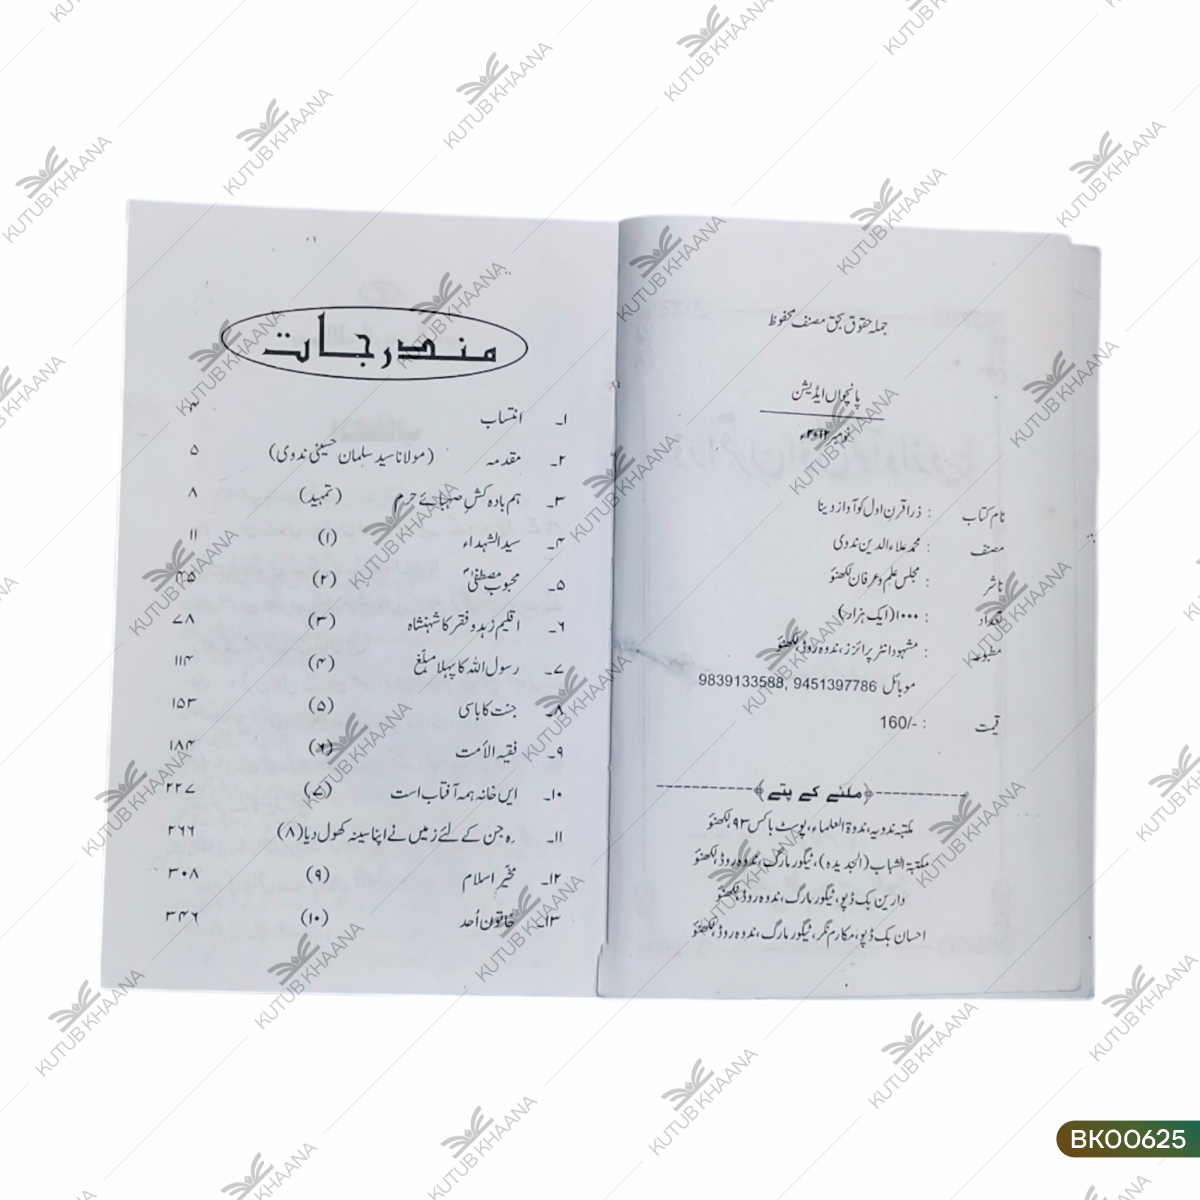 جملہ حقوق بحق مصنف محفوظ
پانچواں ایڈیشن
نام کتاب : ذرا قرن اول کو آواز دینا
مصنف : محمد علاء الدین ندوی
ناشر : مجلس علم و عرفان لکھنؤ
تعداد : ۱۰۰۰ (ایک ہزار)
مطبوعہ : مشہود انٹر پرائزز، ندوہ روڈ، لکھنؤ
موبائل 9839133588, 9451397786
قیمت : 160/-
ملنے کے پتے
مکتبہ ندویہ، ندوۃ العلماء، پوسٹ باکس ۹۳ لکھنؤ
مکتبۃ الشباب (الجدیدہ)، ٹیگور مارگ، ندوہ روڈ، لکھنؤ
دارین بک ڈپو، ٹیگور مارگ، ندوہ روڈ، لکھنؤ
احسان بک ڈپو، مکارم نگر، ٹیگور مارگ، ندوہ روڈ، لکھنؤ
مندرجات
۱۔ انتساب ۳
۲۔ مقدمہ (مولانا سید سلمان حسینی ندوی) ۵
۳۔ ہم بادہ کش صہبائے حرم (تمہید) ۸
۴۔ سید الشہداء (۱) ۱۱
۵۔ محبوب مصطفیٰ (۲) ۴۵
۶۔ اقلیم زہد و فقر کا شہنشاہ (۳) ۷۸
۷۔ رسول اللہ کا پہلا مبلغ (۴) ۱۱۴
۸۔ جنت کا باسی (۵) ۱۵۳
۹۔ فقیہ الأمت (۶) ۱۸۴
۱۰۔ ایں خانہ ہمہ آفتاب است (۷) ۲۲۷
۱۱۔ وہ جن کے لئے زمیں نے اپنا سینہ کھول دیا (۸) ۲۶۶
۱۲۔ مخیّر اسلام (۹) ۳۰۸
۱۳۔ خاتون اُحد (۱۰) ۳۴۶
KUTUB KHAANA
BK00625